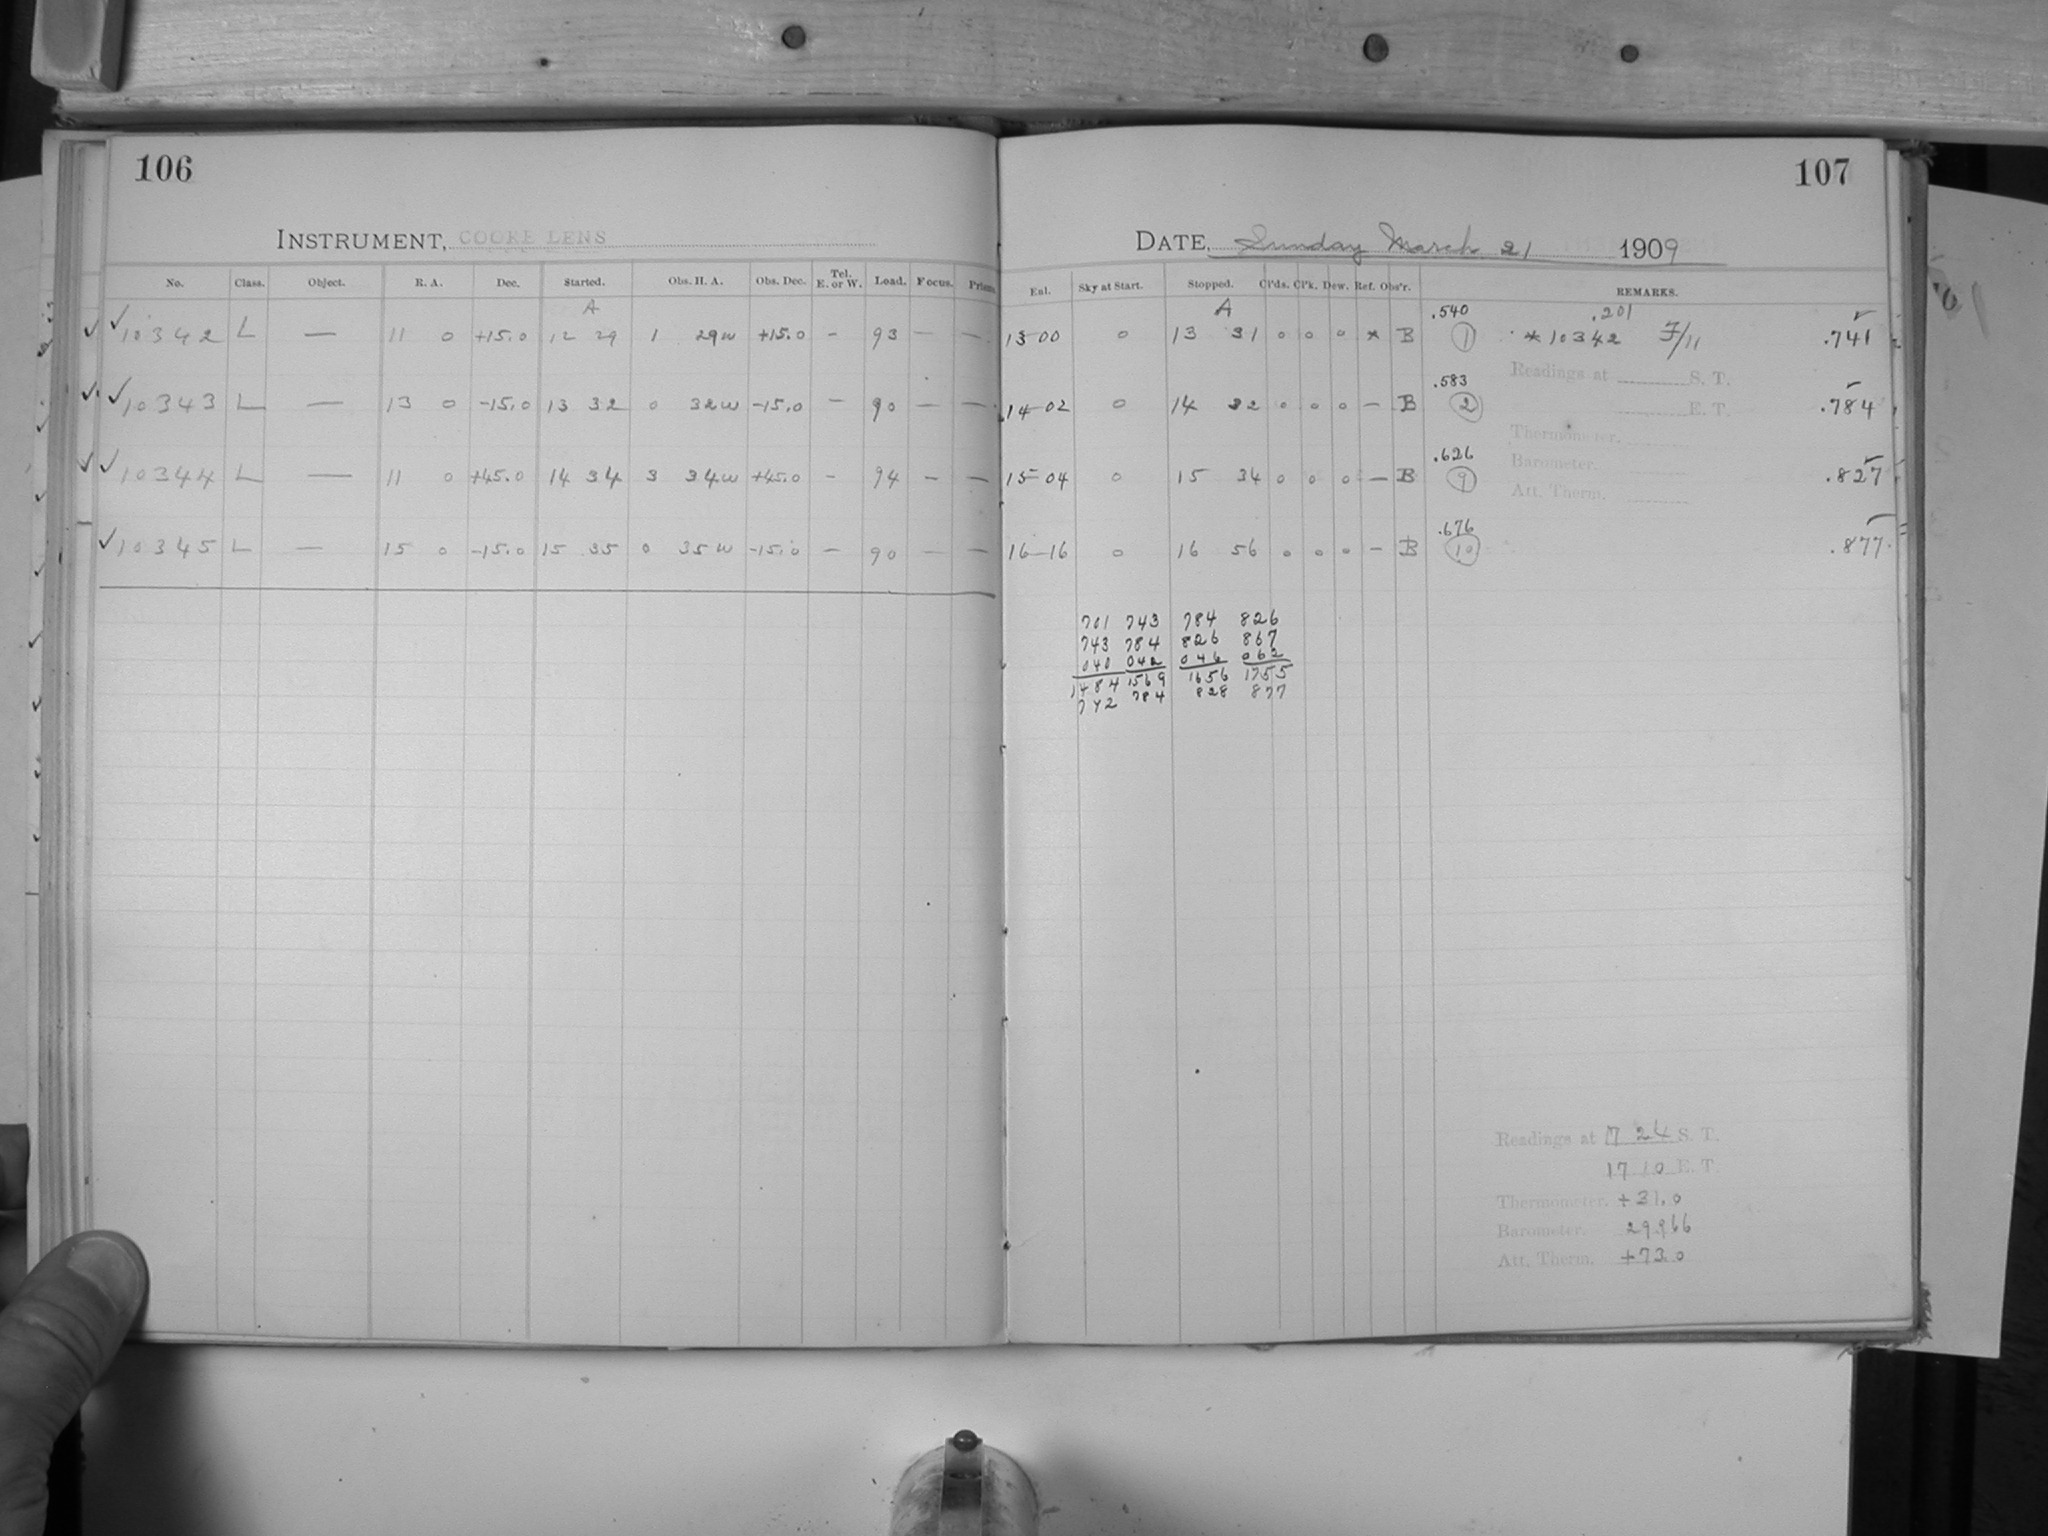 106
107
INSTRUMENT, COOKE LENS
DATE, Sunday March 21 1909
No. Class. Object. R. A. Dec. Started. Obs. H. A. Obs. Dec. Tel. E. or W. Load. Focus. Prisms.
Ent. Sky at Start. Stopped. Cl'ds. Cl'k. Dew. Ref. Obs'r. REMARKS.
A A .540 .201
✓ ✓ 10342 L — 11 0 +15.0 12 29 1 29W +15.0 – 93 — — 13-00 0 13 31 0 0 0 * B 1 * 10342 F/11 .741 ✓
Readings at S. T.
.583
✓ ✓ 10343 L — 13 0 -15.0 13 32 0 32W -15.0 – 90 — — 14-02 0 14 32 0 0 0 — B 2 E. T. .784 ✓
Thermometer.
.626 Barometer.
✓ ✓ 10344 L — 11 0 +45.0 14 34 3 34W +45.0 – 94 – — 15-04 0 15 34 0 0 0 — B 9 .827 ✓
Att. Therm.
.676
✓ 10345 L — 15 0 -15.0 15 35 0 35W -15.0 – 90 – — 16-16 0 16 56 0 0 0 – B 10 .877
701 743 784 826
743 784 826 867
040 042 046 062
1484 1569 1656 1755
742 784 828 877
Readings at 17 24 S. T.
17 10 E. T.
Thermometer. +31.0
Barometer. 29.966
Att. Therm. +73.0